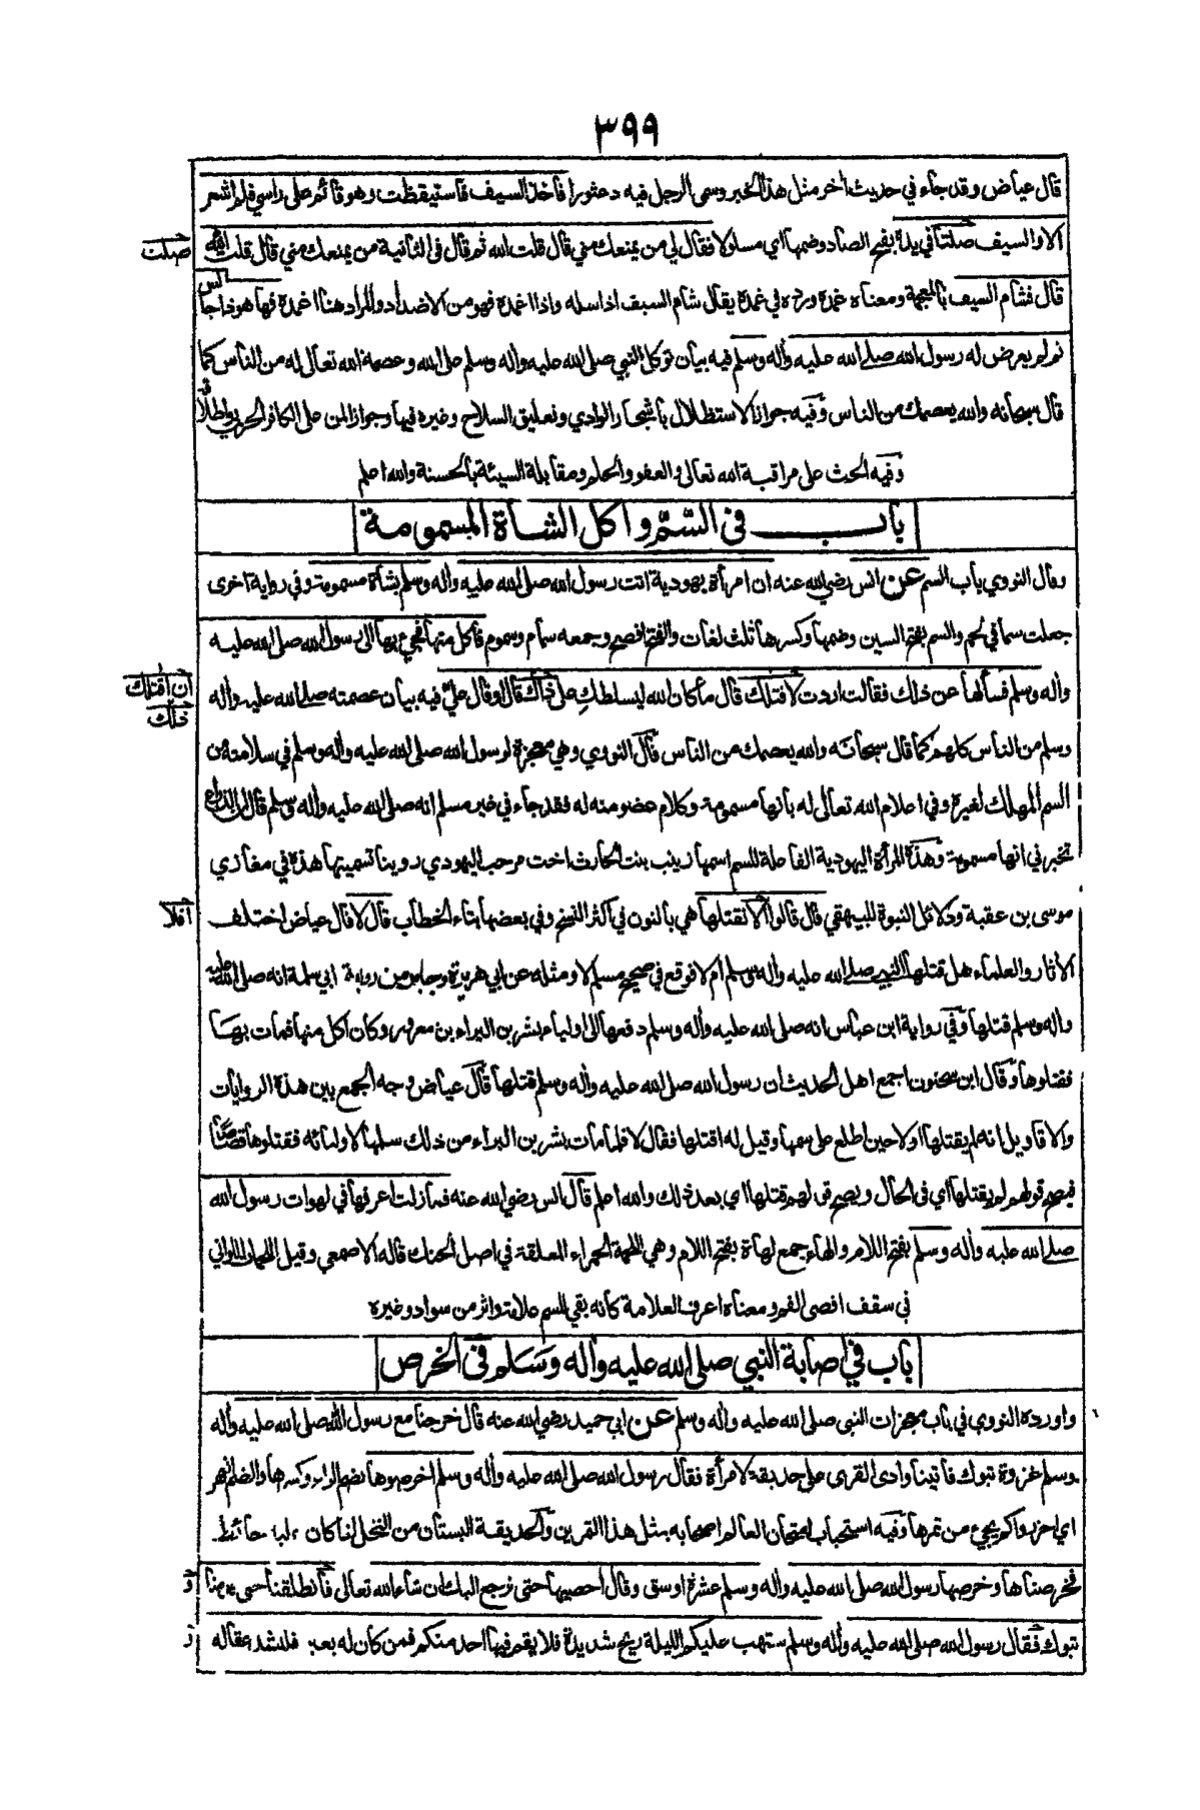 ٣٩٩
قال عياض وقد جاء في حديث اخر مثل هذا الخبر وسمى الرجل فيه دعثورا فأخذ السيف فاستيقظت وهو قائم على راسي فلم اشعر
الا والسيف صلتا في يده بفتح الصاد وضمها اي مسلولا فقال لي من يمنعك مني قال قلت الله ثم قال في الثانية من يمنعك مني قال قلت الله
صلت
قال فشام السيف بالمعجمة ومعناه غمده ورده في غمده يقال شام السيف اذا سله واذا اغمده فهو من الاضداد والمراد هنا اغمده فها هو ذا جالس
ثم لم يعرض له رسول الله صلى الله عليه وأله وسلم فيه بيان توكل النبي صلى الله عليه وأله وسلم على الله وعصمة الله تعالى له من الناس كما
قال سبحانه والله يعصمك من الناس وفيه جواز الاستظلال بأشجار الوادي وتعليق السلاح وغيره فيها وجواز المن على الكافر الحربي واطلاقه
وفيه الحث على مراقبة الله تعالى والعفو والحلم ومقابلة السيئة بالحسنة والله اعلم
باب في السّمّ واكل الشاة المسمومة
وقال النووي باب السم عن انس رضي الله عنه ان امرأة يهودية اتت رسول الله صلى الله عليه وأله وسلم بشاة مسمومة وفي رواية اخرى
جعلت سما في لحم والسم بفتح السين وضمها وكسرها ثلث لغات والفتح افصح وجمعه سمام وسموم فأكل منها فجيء بها الى رسول الله صلى الله عليه
وأله وسلم فسألها عن ذلك فقالت اردت لاقتلك قال ما كان الله ليسلطك على ذاك قال او قال عليّ فيه بيان عصمته صلى الله عليه وأله
ان اقتلك
ذلك
وسلم من الناس كلهم كما قال سبحانه والله يعصمك من الناس قال النووي وهي معجزة لرسول الله صلى الله عليه وأله وسلم في سلامته من
السم المهلك لغيره وفي اعلام الله تعالى له بانها مسمومة وكلام عضو منه له فقد جاء في غير مسلم انه صلى الله عليه وأله وسلم قال ان الذراع
تخبرني انها مسمومة وهذه المرأة اليهودية الفاعلة للسم اسمها زينب بنت الحارث اخت مرحب اليهودي روينا تسميتها هذه في مغازي
موسى بن عقبة ودلائل النبوة للبيهقي قال قالوا الا نقتلها هي بالنون في اكثر النسخ وفي بعضها بتاء الخطاب قال لا قال عياض اختلف
افلا
الاثار والعلماء هل قتلها النبي صلى الله عليه وأله وسلم ام لا فوقع في صحيح مسلم لا ومثله عن ابي هريرة وجابر من رواية ابي سلمة انه صلى الله عليه
وأله وسلم قتلها وفي رواية ابن عباس انه صلى الله عليه وأله وسلم دفعها الى اولياء بشر بن البراء بن معرور وكان اكل منها فمات بها
فقتلوها وقال ابن سحنون اجمع اهل الحديث ان رسول الله صلى الله عليه وأله وسلم قتلها قال عياض وجه الجمع بين هذه الروايات
والاقاويل انه لم يقتلها اولا حين اطلع على سمها وقيل له اقتلها فقال لا فلما مات بشر بن البراء من ذلك سلمها لاوليائه فقتلوها قصاصا
فيصح قولهم لم يقتلها اي في الحال ويصح قولهم قتلها اي بعد ذلك والله اعلم قال انس رضي الله عنه فما زلت اعرفها في لهوات رسول الله
صلى الله عليه وأله وسلم بفتح اللام والهاء جمع لهاة بفتح اللام وهي اللحمة الحمراء المعلقة في اصل الحنك قاله الاصمعي وقيل اللحمات اللواتي
في سقف اقصى الفم ومعناه اعرف العلامة كأنه بقي للسم علامة واثر من سواد وغيره
باب في اصابة النبي صلى الله عليه وأله وسلم في الخرص
واورده النووي في باب معجزات النبي صلى الله عليه وأله وسلم عن ابي حميد رضي الله عنه قال خرجنا مع رسول الله صلى الله عليه وأله
وسلم غزوة تبوك فأتينا وادي القرى على حديقة لامرأة فقال رسول الله صلى الله عليه وأله وسلم اخرصوها بضم الراء وكسرها والضم اشهر
اي احزروا كم يجيء من تمرها وفيه استحباب امتحان العالم اصحابه بمثل هذا التمرين والحديقة البستان من النخل اذا كان عليه حائط
فخرصناها وخرصها رسول الله صلى الله عليه وأله وسلم عشرة اوسق وقال احصيها حتى نرجع اليك ان شاء الله تعالى فانطلقنا حتى قدمنا
و
تبوك فقال رسول الله صلى الله عليه وأله وسلم ستهب عليكم الليلة ريح شديدة فلا يقم فيها احد منكم فمن كان له بعير فليشد عقاله